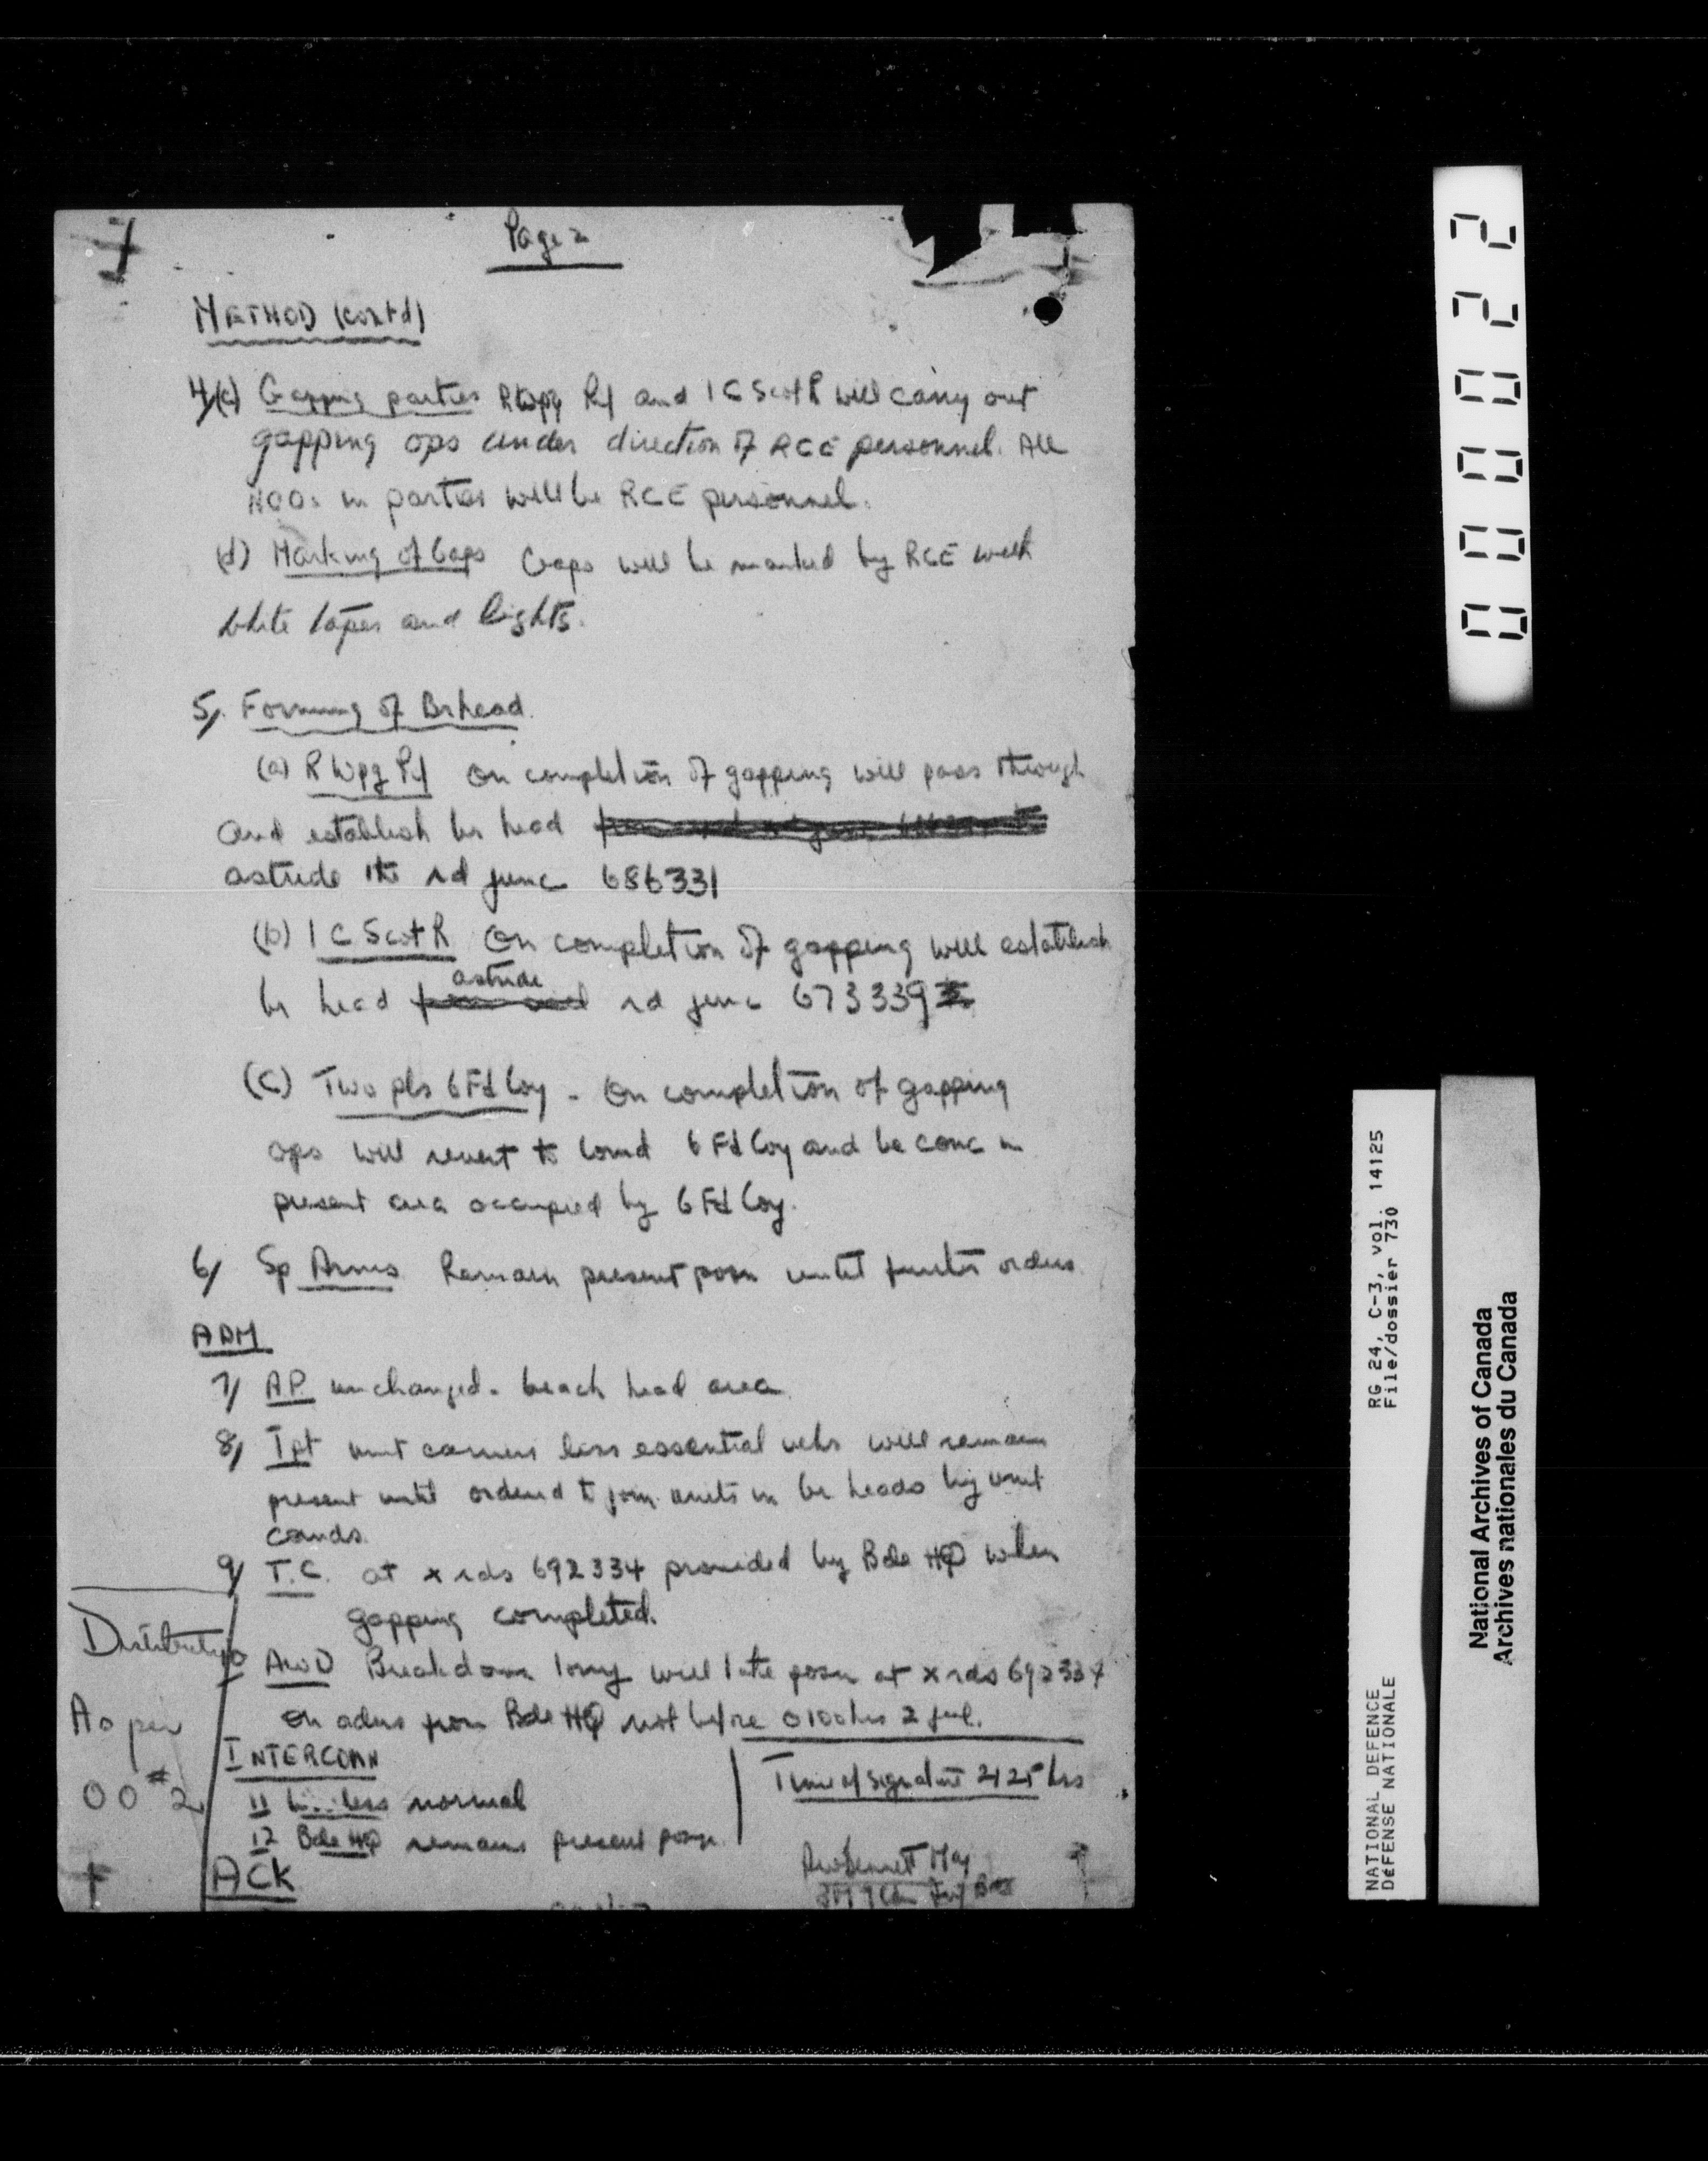 Page 2
METHOD (contd)
4/(c) Gapping parties R Wpg Rif and 1 C Scot R will carry out
gapping ops under direction of RCE personnel. All
NCOs in parties will be RCE personnel.
(d) Marking of Gaps Gaps will be marked by RCE with
white tapes and lights.
5/. Forming of Brhead.
(a) R Wpg Rif On completion of gapping will pass through
and establish br head
astride the rd junc 686331
(b) 1 C Scot R On completion of gapping will establish
astride
br head rd junc 673339
(c) Two pls 6 Fd Coy - On completion of gapping
ops will revert to comd 6 Fd Coy and be conc in
present area occupied by 6 Fd Coy.
6/ Sp Arms Remain present posn until further orders.
ADM
7/ A.P. unchanged - beach head area.
8/ Tpt unit carriers less essential vehs will remain
present until ordered to join units in br heads by unit
comds.
9/ T.C. at x rds 692334 provided by Bde HQ when
gapping completed.
Distribution
AWD Breakdown lorry will take posn at x rds 692334
As per
on orders from Bde HQ not before 0100 hrs 2 Jul.
INTERCOMN
OO # 2
Time of signature 2125 hrs
11 Wireless normal
12 Bde HQ remains present posn.
ACK
Maj
7 Cdn Inf Bde
0 0 0 0 2 2
RG 24, C-3, vol. 14125
File/dossier 730
NATIONAL DEFENCE
DéFENSE NATIONALE
National Archives of Canada
Archives nationales du Canada